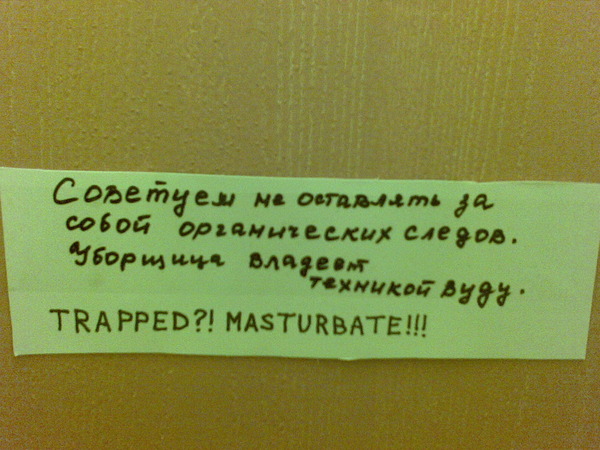 Советуем не оставлять за
собой органических следов.
Уборщица владеет
техникой вуду.
TRAPPED?! MASTURBATE!!!